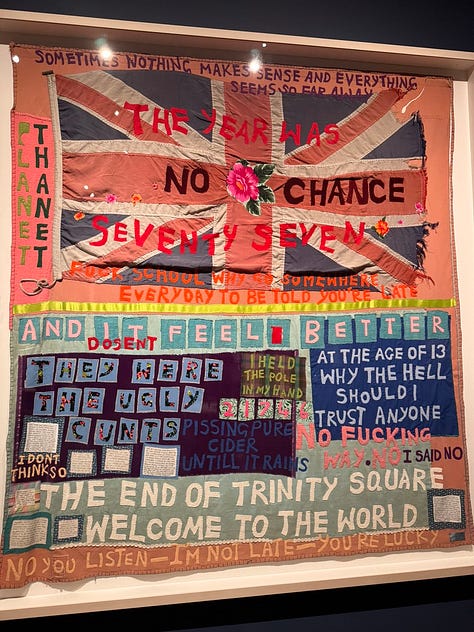 SOMETIMES NOTHING MAKES SENSE AND EVERYTHING
SEEMS SO FAR AWAY
PLANET
THANET
THE YEAR WAS
NO CHANCE
SEVENTY SEVEN
FUCK SCHOOL WHY GO SOMEWHERE
EVERYDAY TO BE TOLD YOU'RE LATE
AND IT FEEL BETTER
DOSENT
THEY HERE
THE UGLY
CUNTS
I HELD
THE POLE
IN MY HAND
PISSING PURE
CIDER
UNTILL IT RAINS
AT THE AGE OF 13
WHY THE HELL
SHOULD I
TRUST ANYONE
NO FUCKING
WAY.NO I SAID NO
I DONT
THINK SO
THE END OF TRINITY SQUARE
WELCOME TO THE WORLD
NO YOU LISTEN—IM NOT LATE—YOU'RE LUCKY